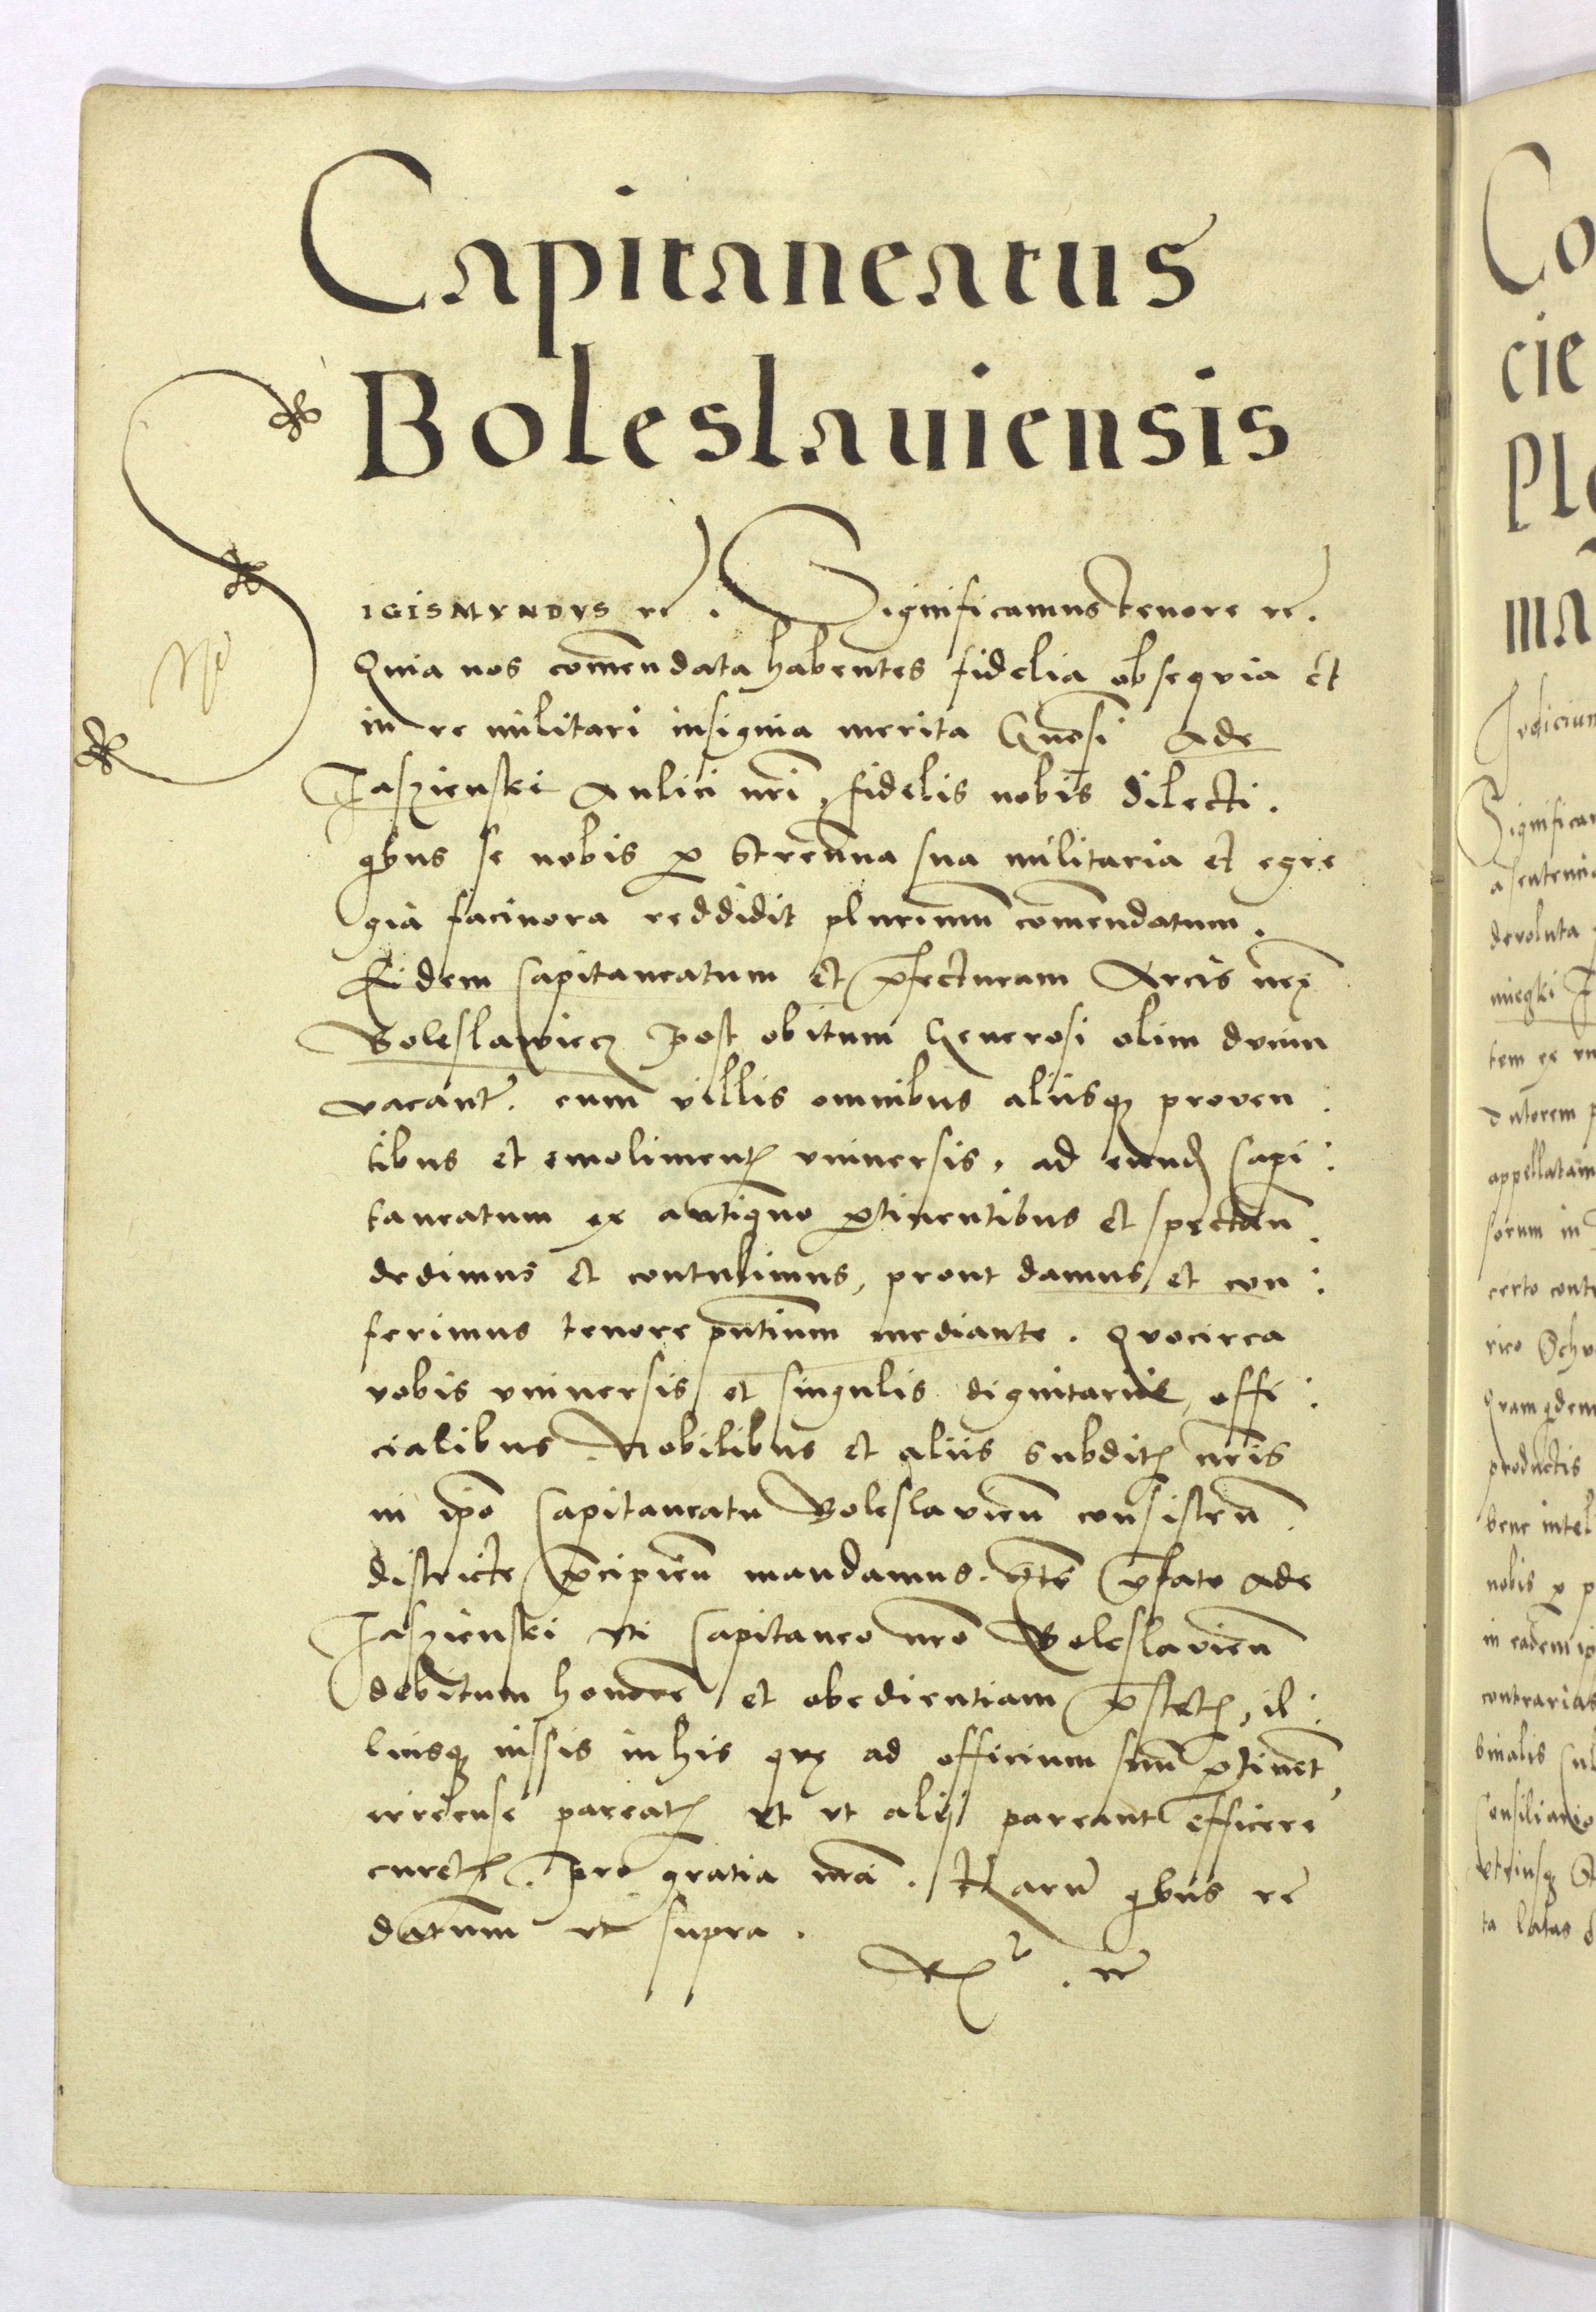 Capitaneatus
Boleslauiensis
SIGISMVNDVS rc̃. Significamus tenore rc̃.
Quia nos com̃endata habentes fidelia obsequia et
in re militari insignia merita Gn̄osi Ade
Jaszienski Aulici nr̃i, fidelis nobis dilecti.
qbus se nobis p̱ strenua sua militaria et egre
gia facinora reddidit plurimũ com̃endatum.
Eidem Capitaneatum et p̃fecturam Arcis nrę
Boleslawiecz post obitum Generosi olim
vacanť. cum villis omnibus aliisqꝫ proven
tibus et emolimentꝭ vniuersis, ad eundꝭ Capi:
taneatum ex antiquo p̱tinentibus et spectan̄.
dedimus et contulimus, prout damus et con:
ferimus tenore pn̄tium mediante. Quocirca
vobis vniuersis et singulis dignitariis, offi:
cialibus Nobilibus et aliis subditꝭ nr̃is
in ip̃o Capitaneatu Boleslavien̄ consisten̄.
districte p̃cipien̄ mandamus. p̃fato Ade
Jaszienski vti Capitaneo nr̃o Boleslavien̄
debitum honorẽ et obedientiam p̃stetꝭ, il:
liusqꝫ iussis in his quę ad officium suũ p̱tinent
pareatꝭ et vt alij pareant efficere
curetꝭ. pro gratia nr̃a. Harũ qbus rc̃
datum vt supra.
Rꝭ. rc̃
Co
cie
Pl
ma
Judicium
Significam
a sententia
devoluta
tem ex
dutorem
appellatam
sorum in
certo cont
rico
Quam qdem
productis
bene intel
nobis p̱ p
in eadem ip
contrarias
binalis
Consiliario
vtriusqꝫ
ta latas